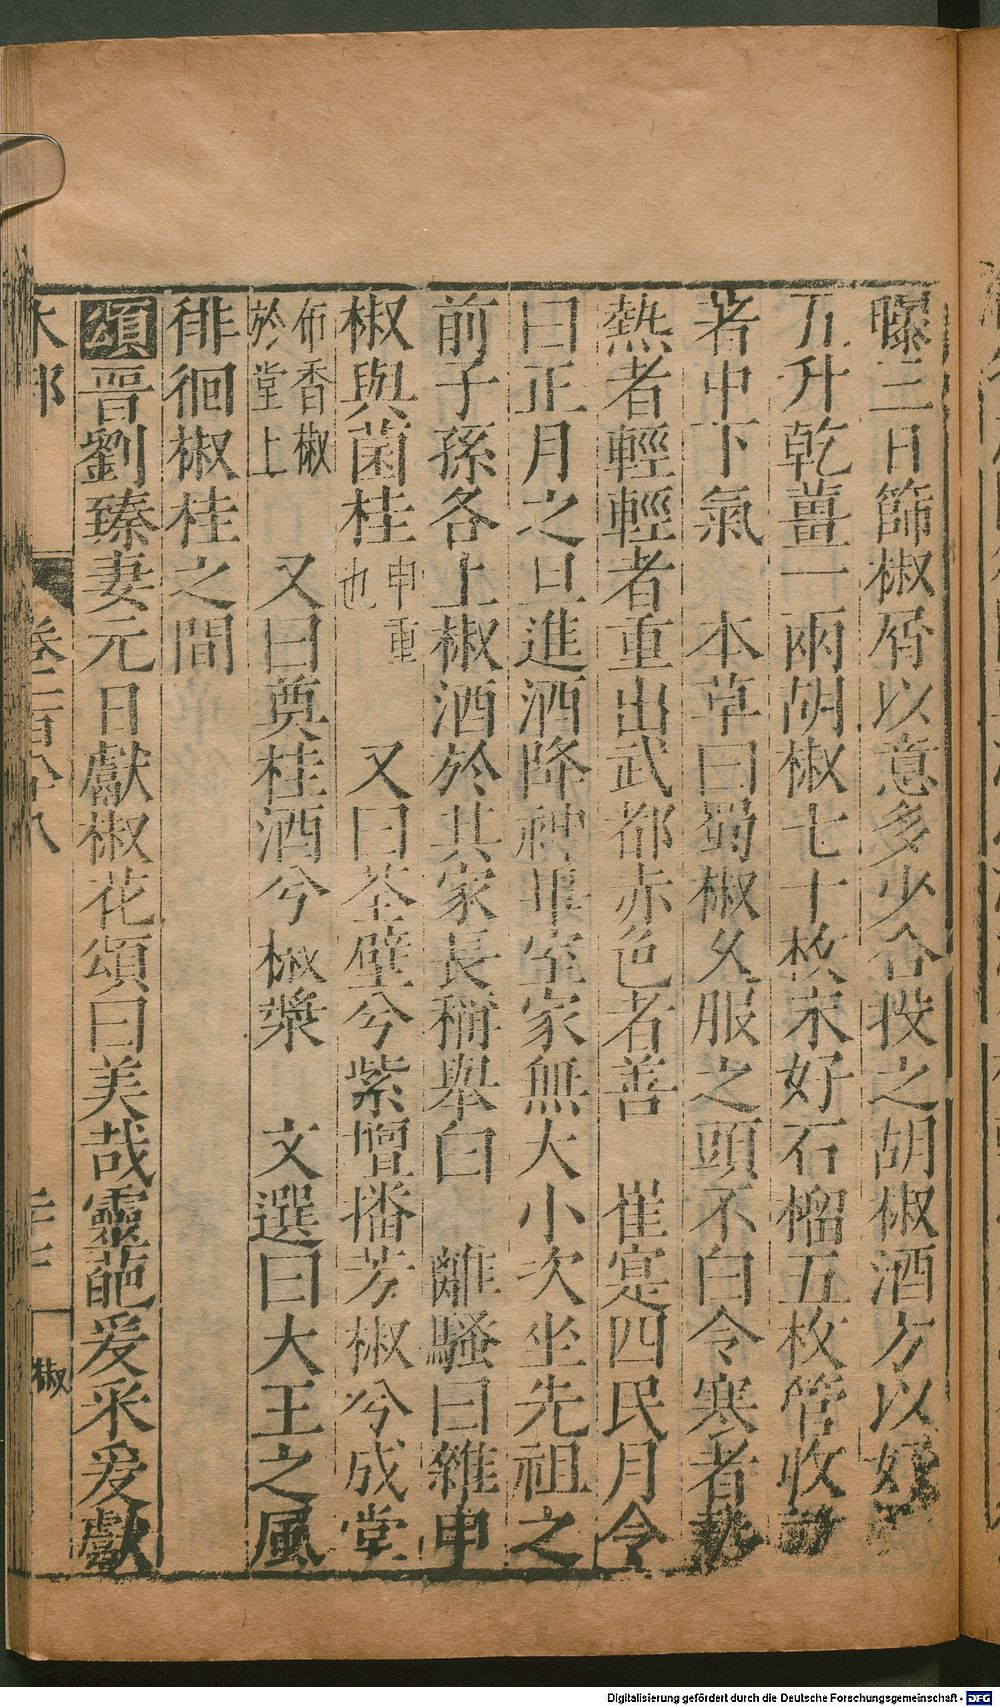 曝三日篩椒屑以意多少合投之胡椒酒方以好
五升乾薑一兩胡椒七十枚末好石榴五枚管收
著中下氣　本草曰蜀椒久服之頭不白令寒者
熱者輕輕者重出武都赤色者善　崔寔四民月令
曰正月之旦進酒降神畢室家無大小次坐先祖之
前子孫各上椒酒於其家長稱舉白　離騷曰雜申
椒與菌桂申重也　又曰荃壁兮紫壇播芳椒兮成堂
布香椒於堂上　又曰奠桂酒兮椒漿　文選曰大王之風
徘徊椒桂之間
頌晉劉臻妻元日獻椒花頌曰美哉靈葩爰采爰獻
木部　卷二百八十八　椒
Digitalisierung gefördert durch die Deutsche Forschungsgemeinschaft - DFG